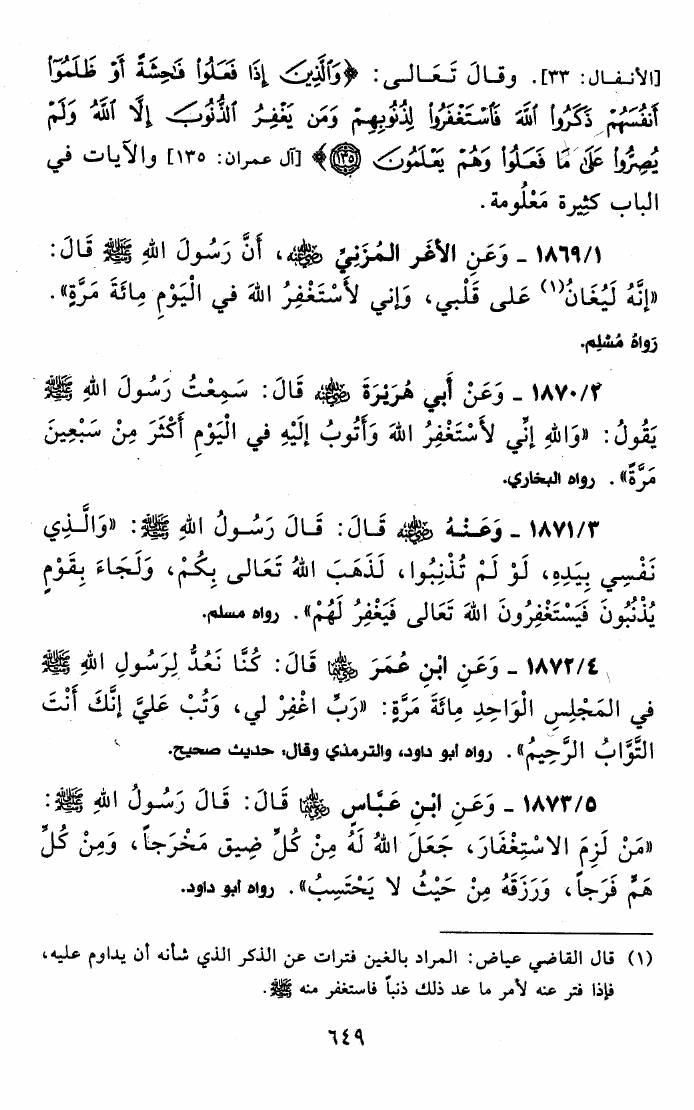 [الأنفال: ٣٣]. وقالَ تَعَالى: ﴿وَٱلَّذِينَ إِذَا فَعَلُوا۟ فَٰحِشَةً أَوْ ظَلَمُوٓا۟
أَنفُسَهُمْ ذَكَرُوا۟ ٱللَّهَ فَٱسْتَغْفَرُوا۟ لِذُنُوبِهِمْ وَمَن يَغْفِرُ ٱلذُّنُوبَ إِلَّا ٱللَّهُ وَلَمْ
يُصِرُّوا۟ عَلَىٰ مَا فَعَلُوا۟ وَهُمْ يَعْلَمُونَ ۝١٣٥﴾ [آل عمران: ١٣٥] والآيات في
الباب كثيرة مَعْلُومة.
١٨٦٩/١ - وَعَنِ الأغَر المُزَنِيِّ رضي الله عنه، أَنَّ رَسُولَ اللهِ ﷺ قَالَ:
«إِنَّهُ لَيُغَانُ(١) عَلى قَلْبي، وَإني لأَسْتَغْفِرُ اللهَ في الْيَوْمِ مِائَةَ مَرَّةٍ».
رَواهُ مُسْلِم.
١٨٧٠/٢ - وَعَنْ أَبي هُرَيْرَةَ رضي الله عنه قَالَ: سَمِعْتُ رَسُولَ اللهِ ﷺ
يَقُولُ: «وَاللهِ إنِّي لأَسْتَغْفِرُ اللهَ وَأَتُوبُ إلَيْهِ في الْيَوْمِ أَكْثَرَ مِنْ سَبْعِينَ
مَرَّةً». رواه البخاري.
١٨٧١/٣ - وَعَنْهُ رضي الله عنه قَالَ: قَالَ رَسُولُ اللهِ ﷺ: «وَالَّذِي
نَفْسِي بِيَدِهِ، لَوْ لَمْ تُذْنِبُوا، لَذَهَبَ اللهُ تَعَالى بِكُمْ، وَلَجَاءَ بِقَوْمٍ
يُذْنُبُونَ فَيَسْتَغْفِرُونَ اللهَ تَعَالى فَيَغْفِرُ لَهُمْ». رواه مسلم.
١٨٧٢/٤ - وَعَنِ ابْنِ عُمَرَ رضي الله عنهما قَالَ: كُنَّا نَعُدُّ لِرَسُولِ اللهِ ﷺ
في المَجْلِسِ الْوَاحِدِ مِائَةَ مَرَّةٍ: «رَبِّ اغْفِرْ لي، وَتُبْ عَليَّ إنَّكَ أَنْتَ
التَّوَّابُ الرَّحِيمُ». رواه ابو داود، والترمذي وقال: حديث صحيح.
١٨٧٣/٥ - وَعَنِ ابْنِ عَبَّاسٍ رضي الله عنهما قَالَ: قَالَ رَسُولُ اللهِ ﷺ:
«مَنْ لَزِمَ الاسْتِغْفَارَ، جَعَلَ اللهُ لَهُ مِنْ كُلِّ ضِيقٍ مَخْرَجاً، وَمِنْ كُلِّ
هَمٍّ فَرَجاً، وَرَزَقَهُ مِنْ حَيْثُ لا يَحْتَسِبُ». رواه ابو داود.
(١) قال القاضي عياض: المراد بالغين فترات عن الذكر الذي شأنه أن يداوم عليه،
فإذا فتر عنه لأمر ما عد ذلك ذنباً فاستغفر منه ﷺ.
٦٤٩